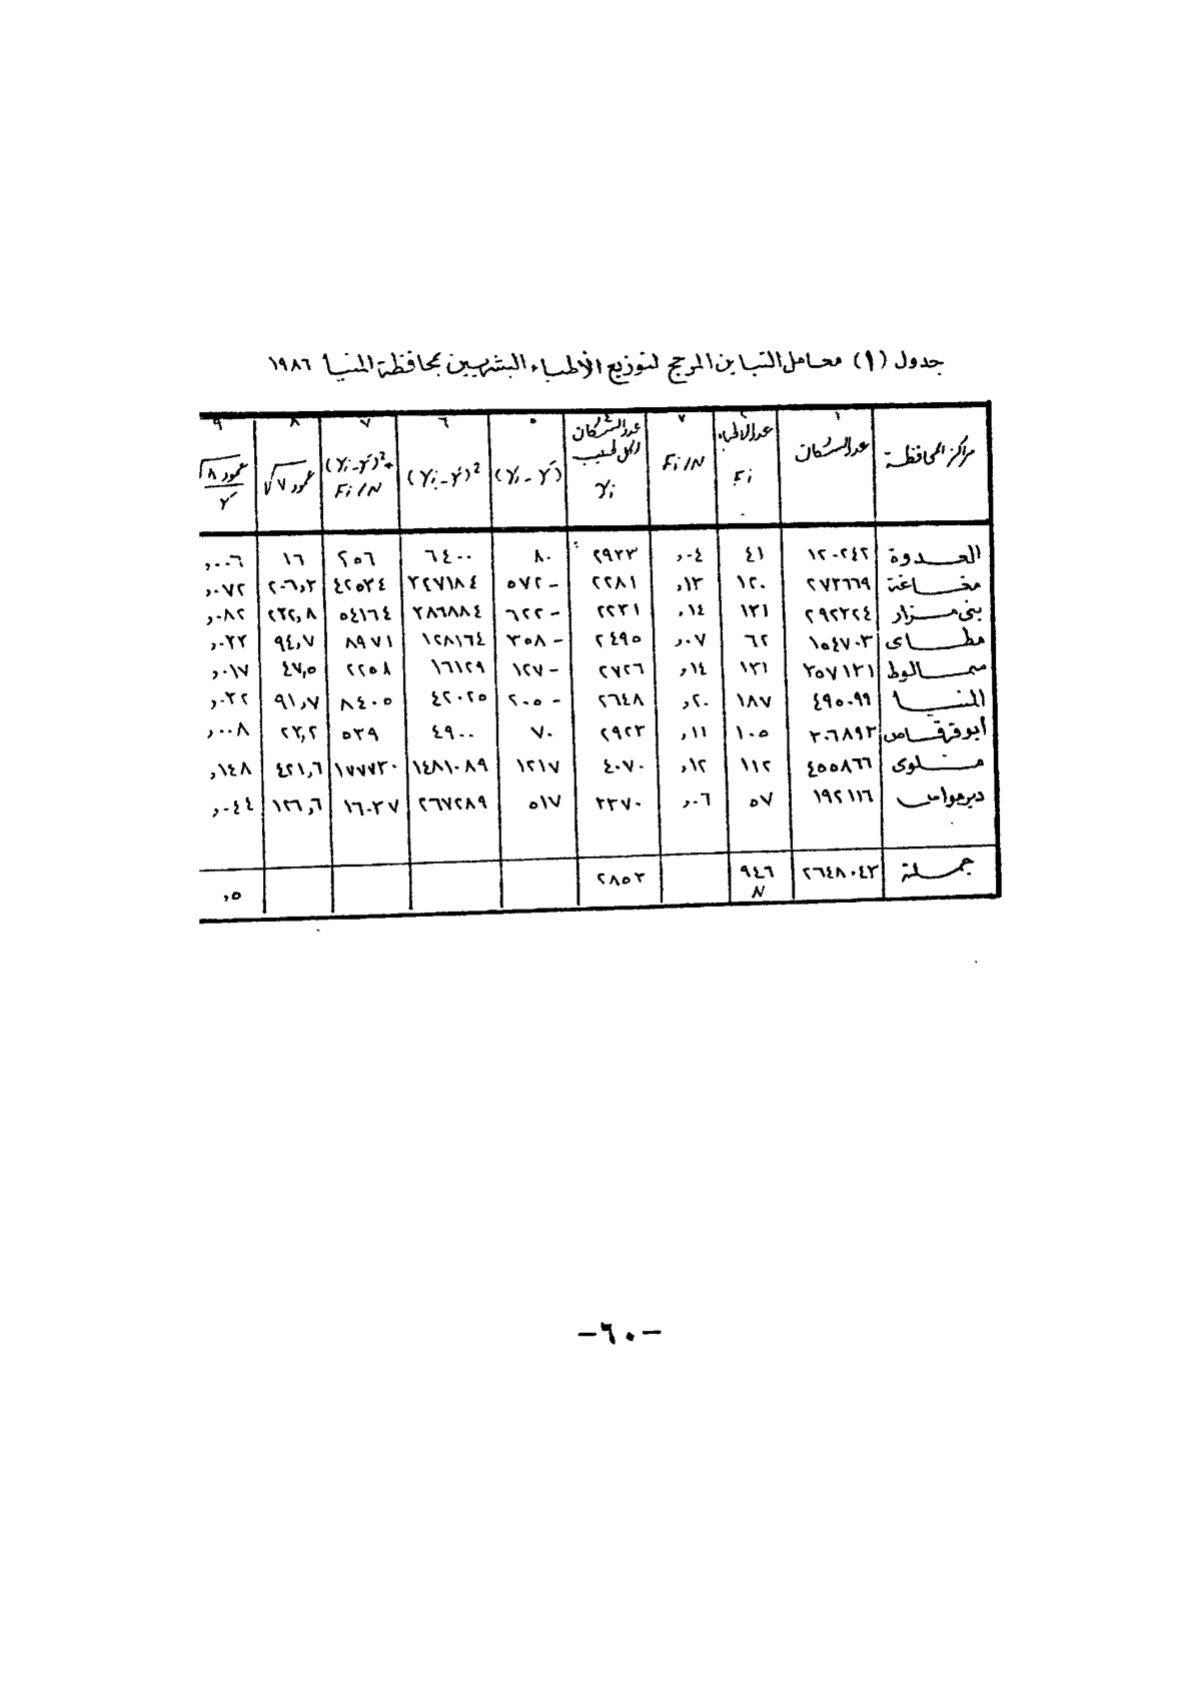 جدول (١) معامل التباين المرجح لتوزيع الأطباء البشريين بمحافظة المنيا ١٩٨٦
مراكز المحافظة | ١ عدد السكان | ٢ عدد الأطباء Fi | ٣ Fi/N | ٤ عدد السكان لكل طبيب Yi | ٥ (Yi - Y̅) | ٦ (Yi - Y̅)² | ٧ (Yi - Y̅)²* Fi/N | ٨ √عمود ٧ | ٩ √عمود ٨ / Y̅
العدوة | ١٢٠٢٤٢ | ٤١ | ,٠٤ | ٢٩٣٣ | ٨٠ | ٦٤٠٠ | ٢٥٦ | ١٦ | ,٠٠٦
مغاغة | ٢٧٣٦٦٩ | ١٢٠ | ,١٣ | ٢٢٨١ | ٥٧٢- | ٣٢٧١٨٤ | ٤٢٥٣٤ | ٢٠٦,٣ | ,٠٧٢
بنى مزار | ٢٩٢٣٢٤ | ١٣١ | ,١٤ | ٢٢٣١ | ٦٢٢- | ٣٨٦٨٨٤ | ٥٤١٦٤ | ٢٣٢,٨ | ,٠٨٢
مطاى | ١٥٤٧٠٣ | ٦٢ | ,٠٧ | ٢٤٩٥ | ٣٥٨- | ١٢٨١٦٤ | ٨٩٧١ | ٩٤,٧ | ,٠٣٣
سمالوط | ٣٥٧١٣١ | ١٣١ | ,١٤ | ٢٧٢٦ | ١٢٧- | ١٦١٢٩ | ٢٢٥٨ | ٤٧,٥ | ,٠١٧
المنيا | ٤٩٥٠٩٩ | ١٨٧ | ,٢٠ | ٢٦٤٨ | ٢٠٥- | ٤٢٠٢٥ | ٨٤٠٥ | ٩١,٧ | ,٠٣٢
أبوقرقاص | ٣٠٦٨٩٣ | ١٠٥ | ,١١ | ٢٩٢٣ | ٧٠ | ٤٩٠٠ | ٥٣٩ | ٢٣,٢ | ,٠٠٨
ملوى | ٤٥٥٨٦٦ | ١١٢ | ,١٢ | ٤٠٧٠ | ١٢١٧ | ١٤٨١٠٨٩ | ١٧٧٧٣٠ | ٤٢١,٦ | ,١٤٨
ديرمواس | ١٩٢١١٦ | ٥٧ | ,٠٦ | ٣٣٧٠ | ٥١٧ | ٢٦٧٢٨٩ | ١٦٠٣٧ | ١٢٦,٦ | ,٠٤٤
جملة | ٢٦٤٨٠٤٣ | ٩٤٦ N | ٢٨٥٣ | ,٥
-٦٠-